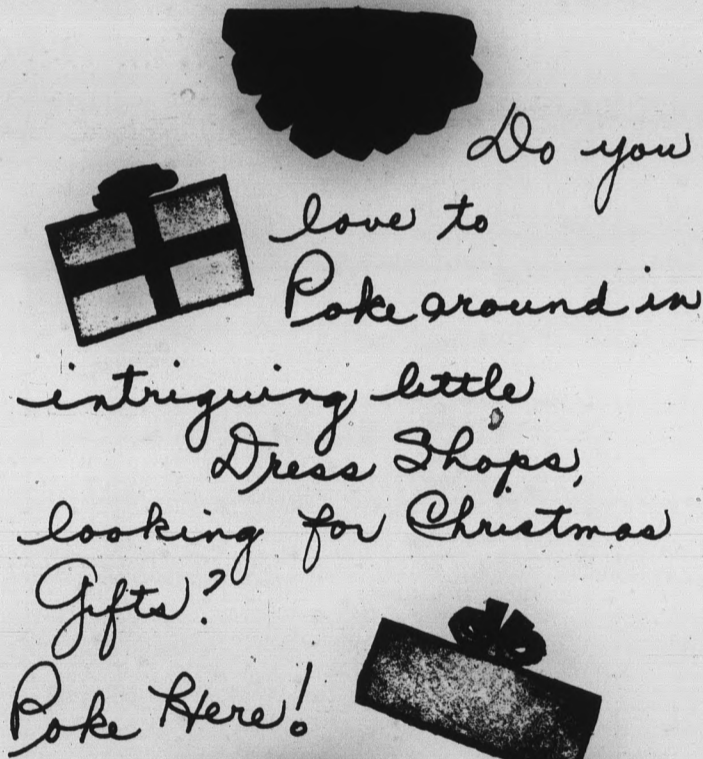 Do you
love to
Poke around in
intriguing little
Dress Shops,
looking for Christmas
Gifts?
Poke Here!